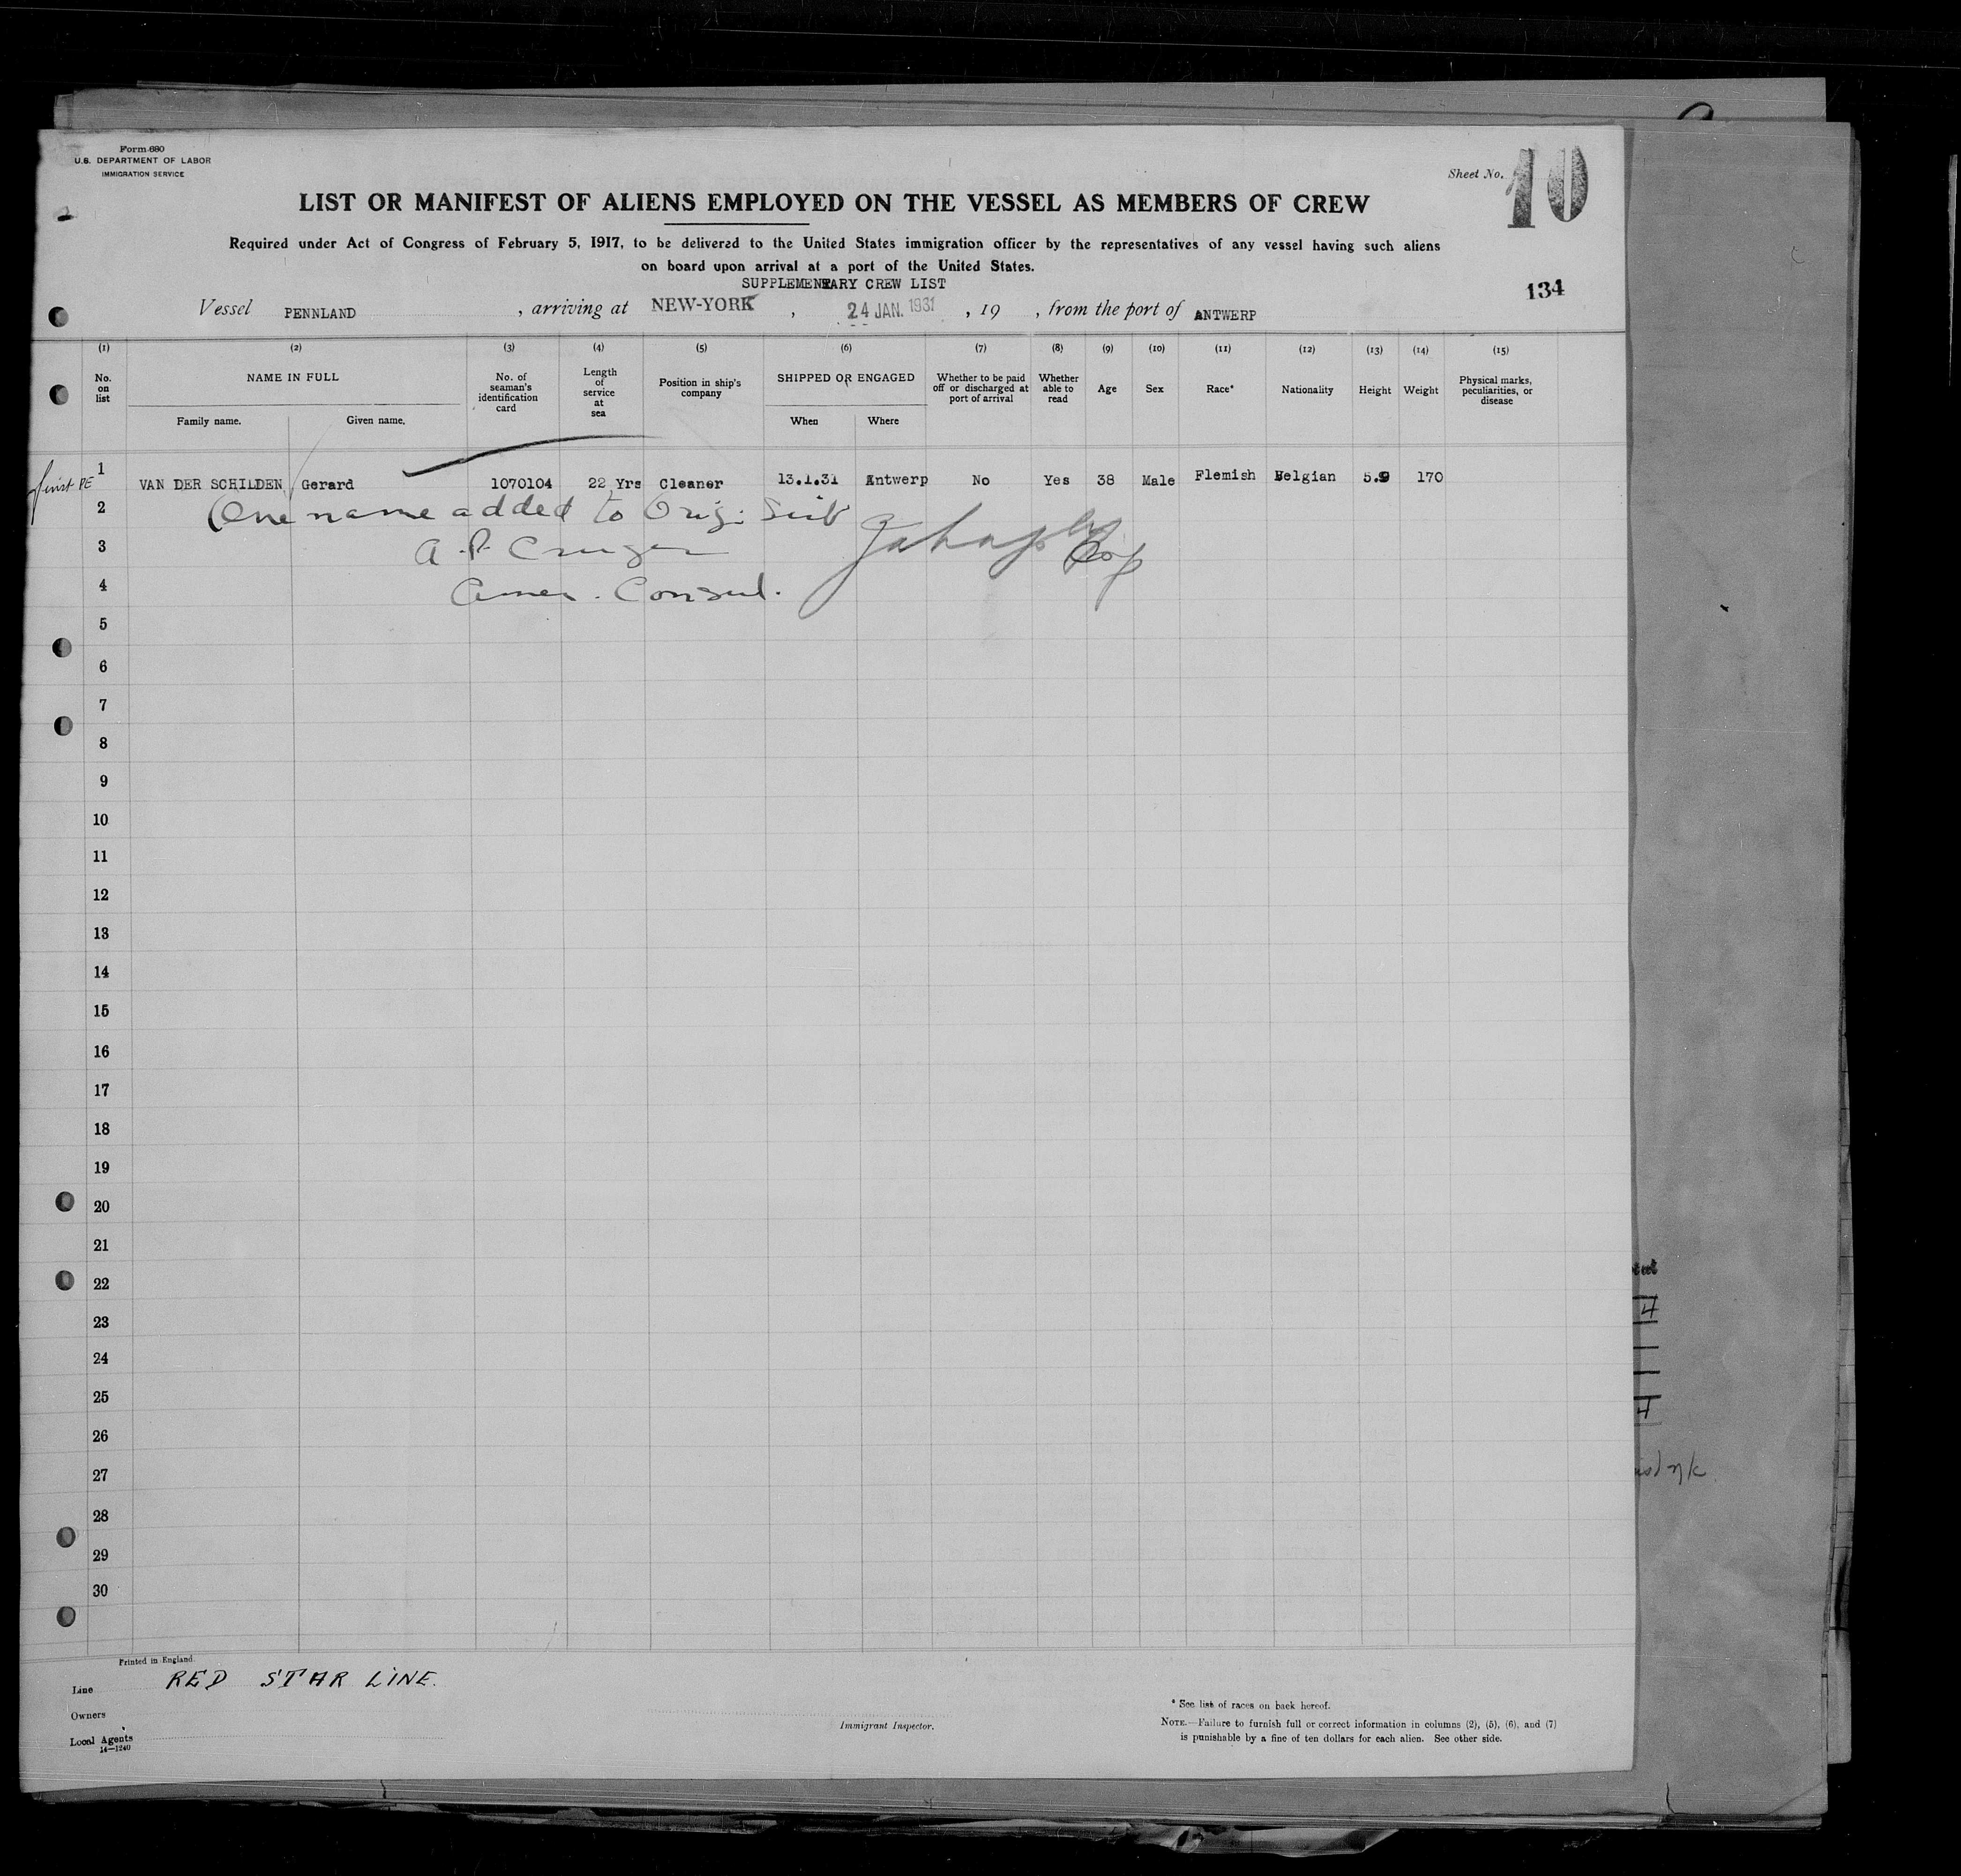 Form 680
U.S. DEPARTMENT OF LABOR
IMMIGRATION SERVICE
Sheet No. 10
LIST OR MANIFEST OF ALIENS EMPLOYED ON THE VESSEL AS MEMBERS OF CREW
Required under Act of Congress of February 5, 1917, to be delivered to the United States immigration officer by the representatives of any vessel having such aliens
on board upon arrival at a port of the United States.
SUPPLEMENTARY CREW LIST
134
Vessel PENNLAND , arriving at NEW-YORK , 24 JAN. 1931 , 19 , from the port of ANTWERP
(1) (2) (3) (4) (5) (6) (7) (8) (9) (10) (11) (12) (13) (14) (15)
No. on list
NAME IN FULL
Family name. Given name.
No. of seaman's identification card
Length of service at sea
Position in ship's company
SHIPPED OR ENGAGED
When Where
Whether to be paid off or discharged at port of arrival
Whether able to read
Age
Sex
Race*
Nationality
Height
Weight
Physical marks, peculiarities, or disease
1 VAN DER SCHILDEN Gerard 1070104 22 Yrs Cleaner 13.1.31 Antwerp No Yes 38 Male Flemish Belgian 5.9 170
2 (One name added to Orig:
3
4 Amer. Consul.
5
6
7
8
9
10
11
12
13
14
15
16
17
18
19
20
21
22
23
24
25
26
27
28
29
30
Printed in England.
Line RED STAR LINE.
Owners
Local Agents
14—1240
Immigrant Inspector.
* See list of races on back hereof.
NOTE.—Failure to furnish full or correct information in columns (2), (5), (6), and (7)
is punishable by a fine of ten dollars for each alien. See other side.